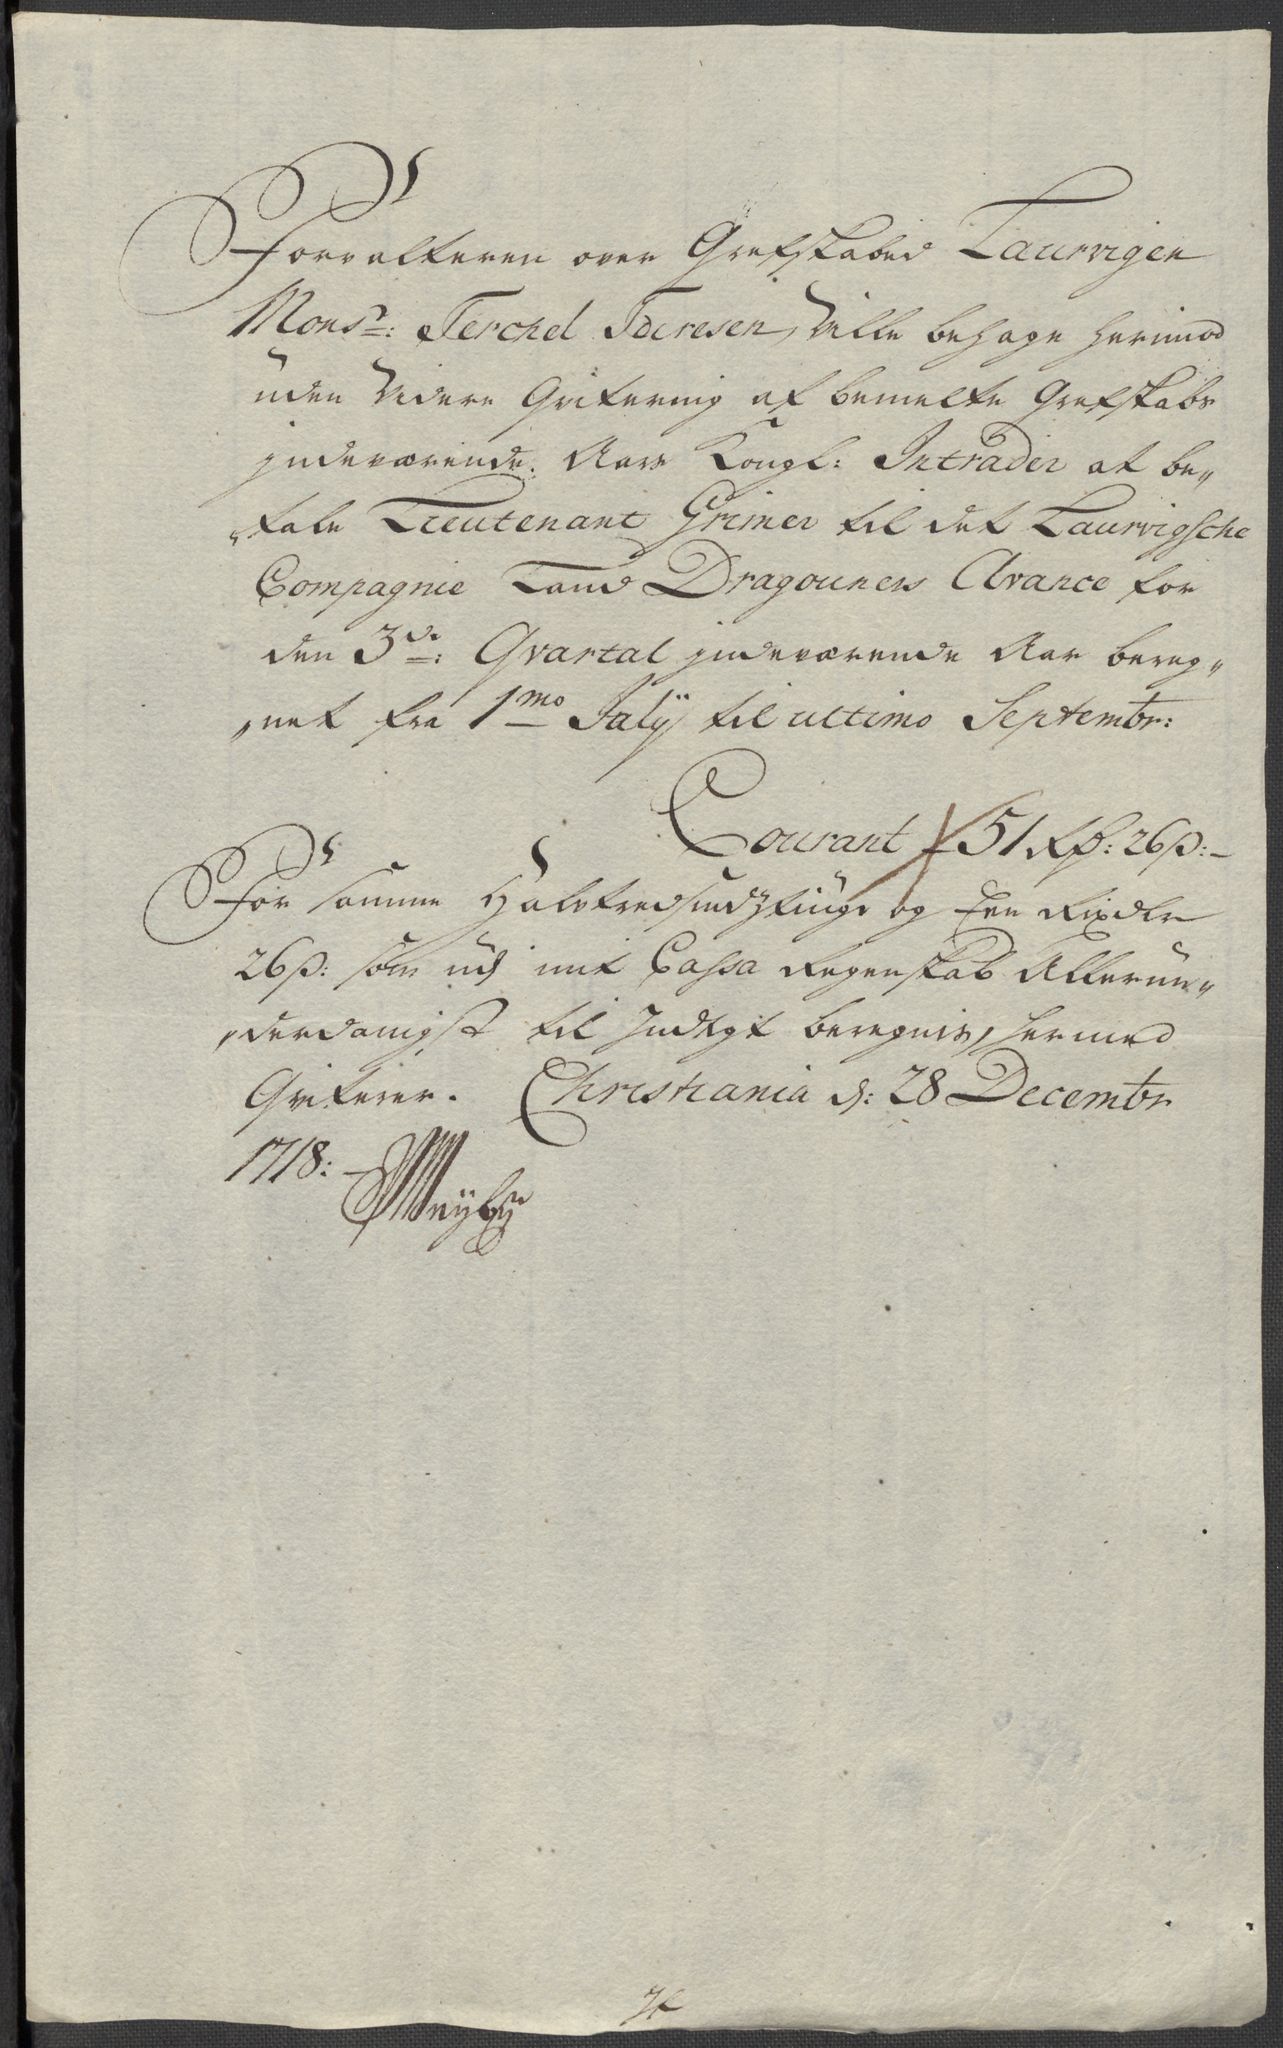 Forvalteren over Grefskabed Laurvigen
Monsr: Terchel Toeresen, Ville behage herimod
uden videre Qvitering af bemelte Grefskabs
indeværende Aars Kongl: Intrader at be„
„tale Lieutenant Grimer til det Laurvigsche
Compagnie Land Dragouners Avance for
den 3de: Qvartal indeværende Aar bereg„
„net fra 1mo Julÿ til ultimo Septembr:
Courant 51 Rd: 26 ß:
For samme Halvtredsindztiuge og Een Rixdlr
26 ß: som udj mit Cassa Regenskab Allerun„
„derdanigst til Indtegt beregnis, hermed
Qviterer. Christiania d: 28 Decembr
1718: